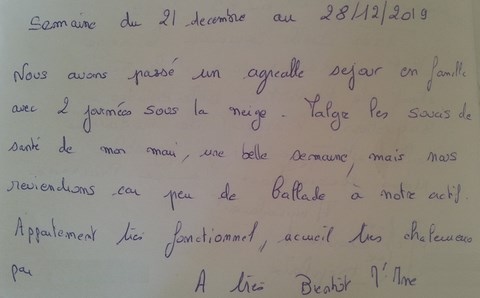 Semaine du 21 decembre au 28/12/2019
Nous avons passé un agreable sejour en famille
avec 2 journées sous la neige. Malgre les soucis de
santé de mon mari, une belle semaine, mais nous
reviendrons car peu de ballade à notre actif.
Appartement très fonctionnel, accueil très chaleureux
A très Bientôt